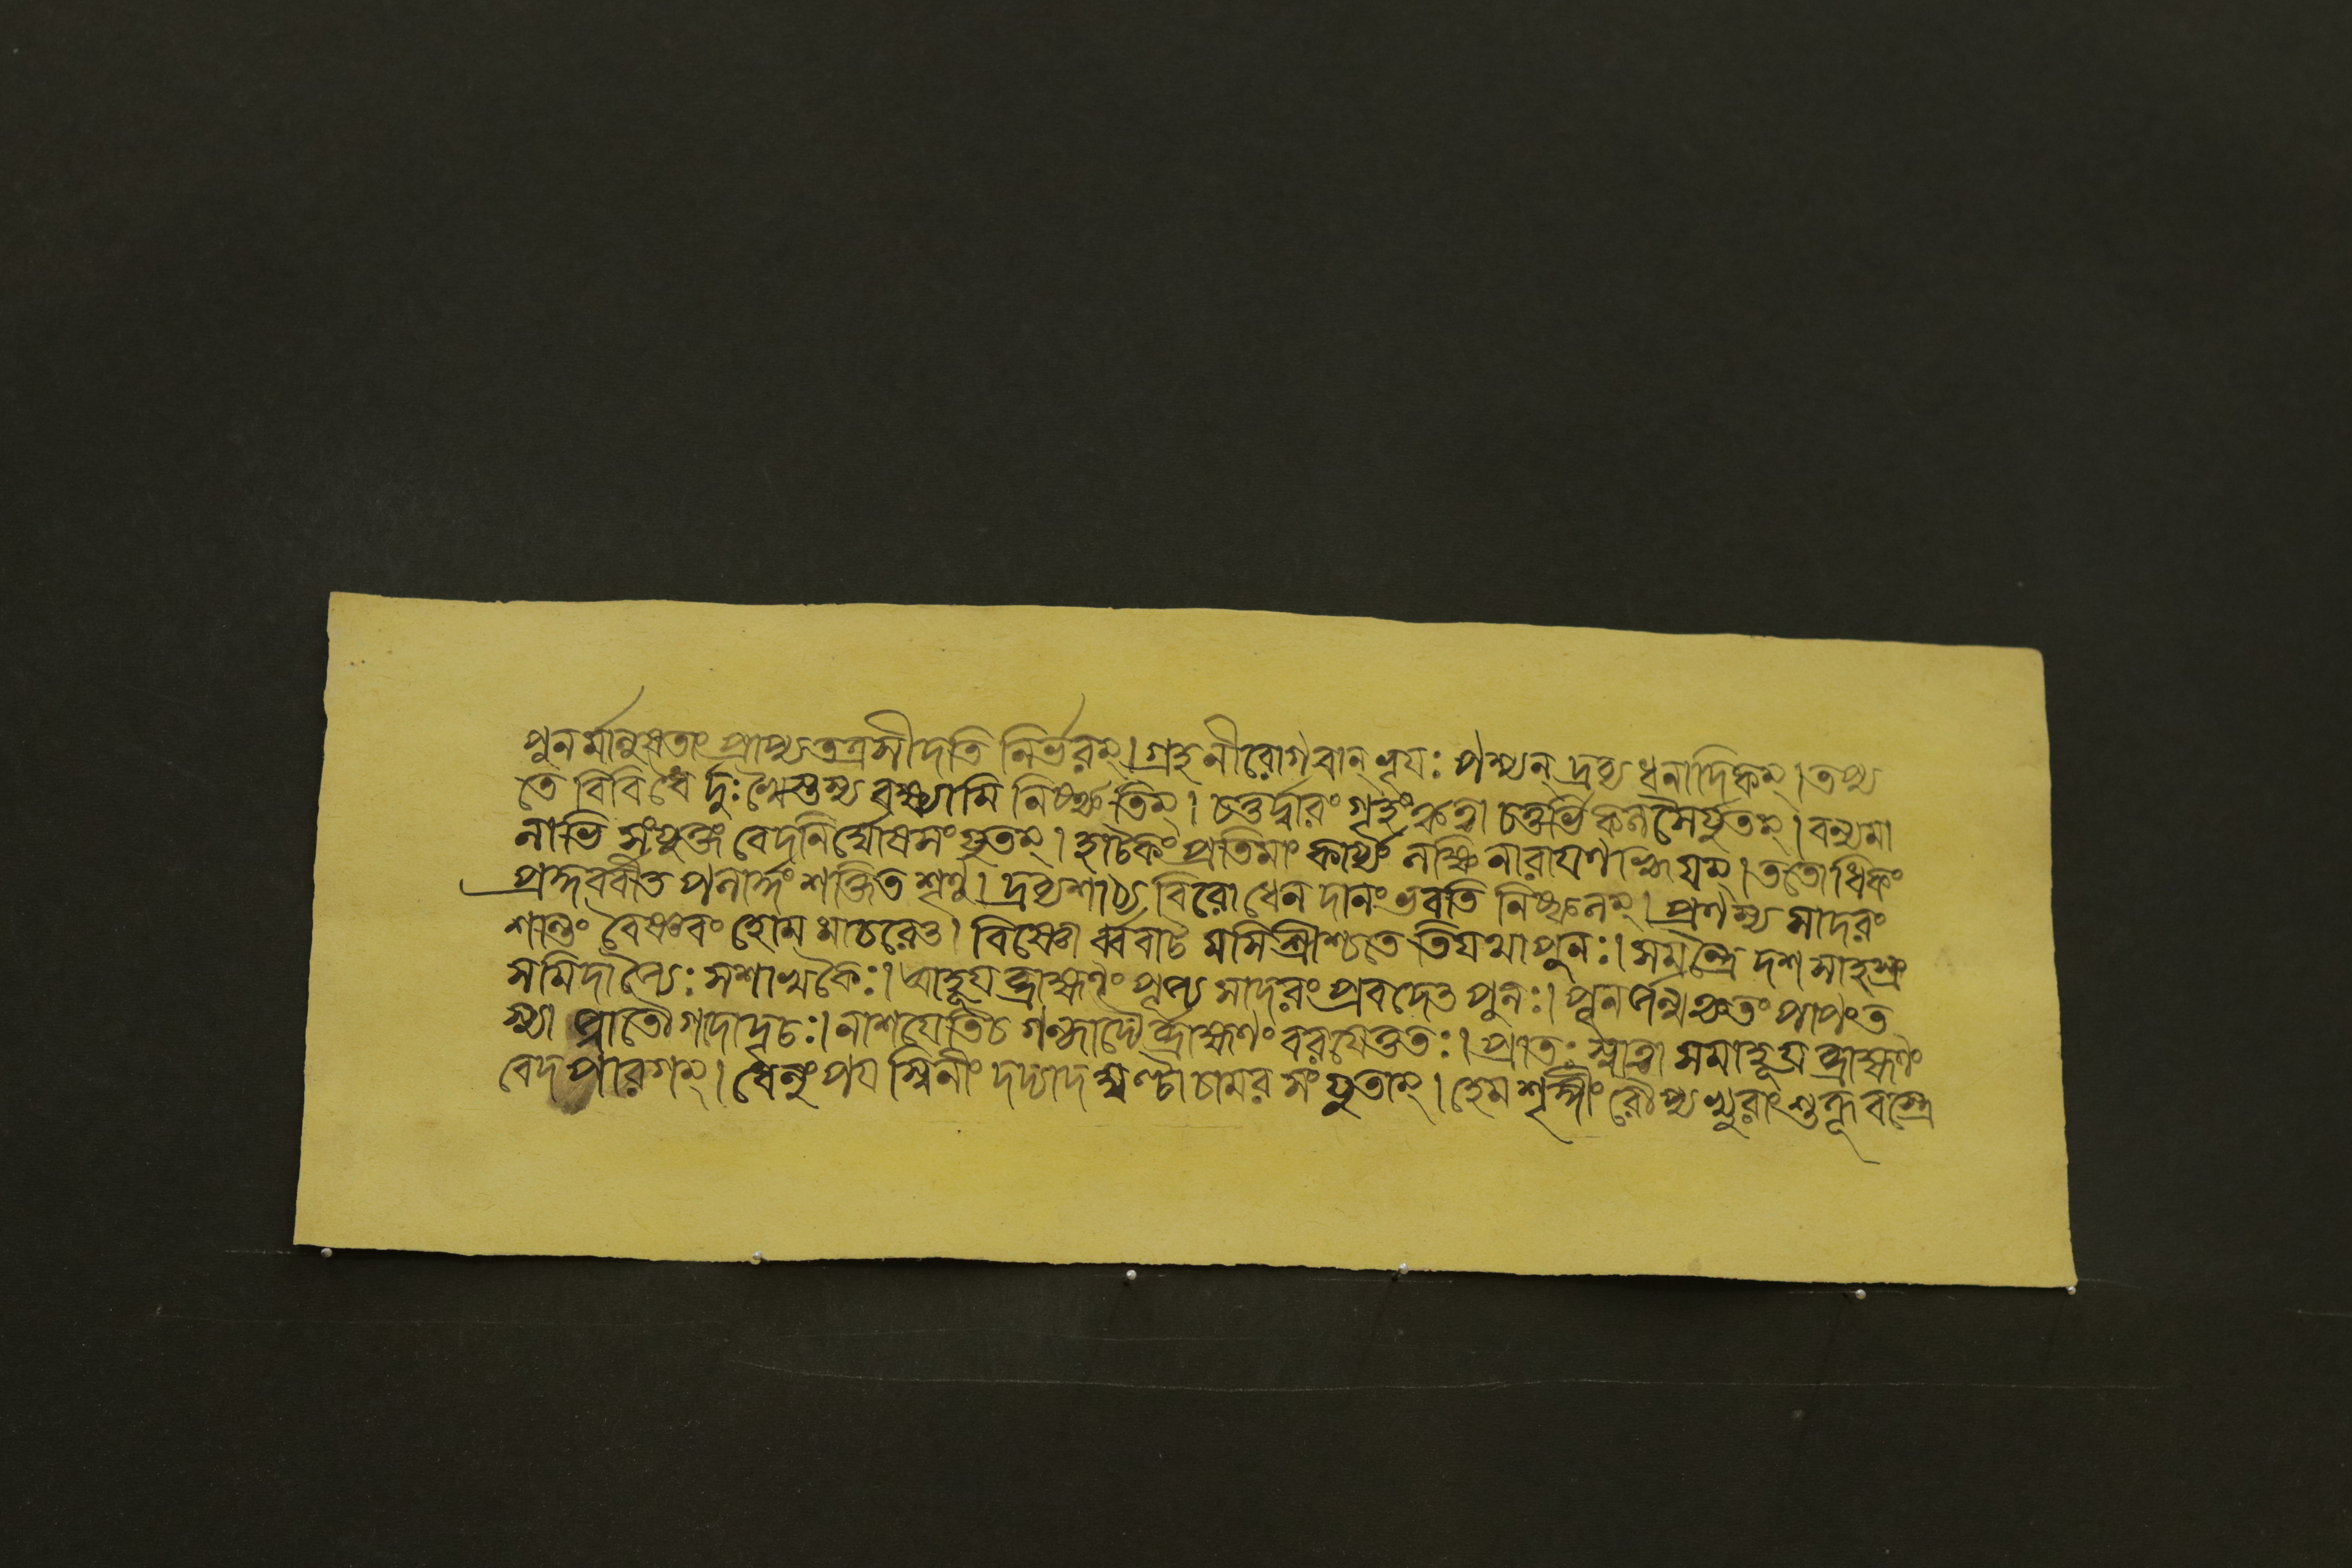 পুনর্মানুষতাং প্রাপ্য তত্র সীদতি নির্ভরম্। গ্রহনীরোগবান্ ভূয়ঃ পশ্যন্ দ্রব্য ধনাদিকম্। তপ্য
তে বিবিধৈ র্দুঃখৈস্তস্য বক্ষ্যামি নিষ্কৃতিম্। চতুর্দ্বারং গৃহং কৃত্বা চতুর্ভি কলসৈর্যুতম্। বন্যমা
নাভি সংযুক্তং বেদনির্ঘোষসংযুতম্। হাটকিং প্রতিমাং কার্য্যং লক্ষ্মি নারায়ণ শ্রিয়ম্। ততোধিকং
প্রকুর্বীত পলার্দ্ধং শক্তিত শৃণু। দ্রব্যশাঠ্য বিরোধেন দানং ভবতি নিষ্ফলম্। প্রণম্য সাদরং
শান্তং বৈষ্ণবং হোম মাচরেৎ। বিষ্ণো র্ববাট মসিশ্রীশ্চতে তিযথা পুনঃ। সমন্ত্রৈ দশ সাহস্র
সমিদাজ্যৈঃ সশাল্মকৈঃ। আহূয় ব্রাহ্মণং পূজ্য সাদরং প্রবদেৎ পুনঃ। পূর্বজন্ম কৃতং পাপং ত
স্মা জ্জাতো গদাদৃচঃ। নাশযেতি চ গন্ধাদ্যৈ র্ব্রাহ্মণং বরয়েত্ততঃ। প্রাতঃ স্নাত্বা সমাহূয় ব্রাহ্মণং
বেদ পারগম্। ধেনুং পয়স্বিনীং দদ্যাদ ঘণ্টা চামর সংযুতাম্। হেম শৃঙ্গীং রৌপ্য খুরাং শুক্ল বস্ত্রে